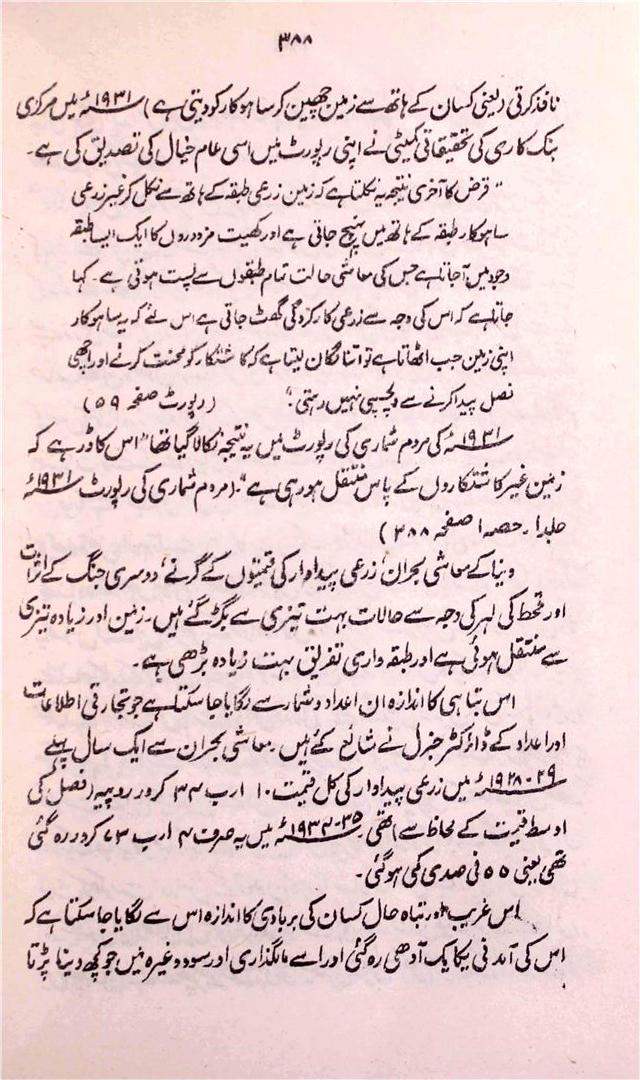 ۳۸۸
نافذ کرتی (یعنی کسان کے ہاتھ سے زمین چھین کر ساہوکار کو دیتی ہے) ۱۹۳۱ء میں مرکزی
بنک کاری کی تحقیقاتی کمیٹی نے اپنی رپورٹ میں اسی عام خیال کی تصدیق کی ہے۔
"قرض کا آخری نتیجہ یہ نکلتا ہے کہ زمین زرعی طبقہ کے ہاتھ سے نکل کر غیر زرعی
ساہوکار طبقہ کے ہاتھ میں پہنچ جاتی ہے اور کھیت مزدوروں کا ایک ایسا طبقہ
وجود میں آجاتا ہے جس کی معاشی حالت تمام طبقوں سے پست ہوتی ہے۔ کہا
جاتا ہے کہ اس کی وجہ سے زرعی کارکردگی گھٹ جاتی ہے اس لئے کہ یہ ساہوکار
اپنی زمین جب اٹھاتا ہے تو اتنا لگان لیتا ہے کہ کاشتکار کو محنت کرنے اور اچھی
فصل پیدا کرنے سے دلچسپی نہیں رہتی۔" (رپورٹ صفحہ ۵۹)
۱۹۳۱ء کی مردم شماری کی رپورٹ میں یہ نتیجہ نکالا گیا تھا "اس کا ڈر ہے کہ
زمین غیر کاشتکاروں کے پاس منتقل ہو رہی ہے"۔ (مردم شماری کی رپورٹ ۱۹۳۱ء
جلد ۱۔ حصہ ۱ صفحہ ۲۸۸)
دنیا کے معاشی بحران، زرعی پیداوار کی قیمتوں کے گرنے، دوسری جنگ کے اثرات
اور قحط کی لہر کی وجہ سے حالات بہت تیزی سے بگڑ گئے ہیں۔ زمین اور زیادہ تیزی
سے منتقل ہوئی ہے اور طبقہ واری تفریق بہت زیادہ بڑھی ہے۔
اس تباہی کا اندازہ ان اعداد و شمار سے لگایا جا سکتا ہے جو تجارتی اطلاعات
اور اعداد کے ڈائرکٹر جنرل نے شائع کئے ہیں۔ معاشی بحران سے ایک سال پہلے
۲۹-۱۹۲۸ء میں زرعی پیداوار کی کل قیمت ۱۰ ارب ۳۴ کرور روپیہ (فصل کی
اوسط قیمت کے لحاظ سے) تھی۔ ۱۹۳۳-۳۵ء میں یہ صرف ۴ ارب ۷۳ کرور رہ گئی
تھی یعنی ۵۵ فی صدی کمی ہو گئی۔
اس غریب اور تباہ حال کسان کی بربادی کا اندازہ اس سے لگایا جا سکتا ہے کہ
اس کی آمدنی یکایک آدھی رہ گئی اور اسے مالگذاری اور سود وغیرہ میں جو کچھ دینا پڑتا